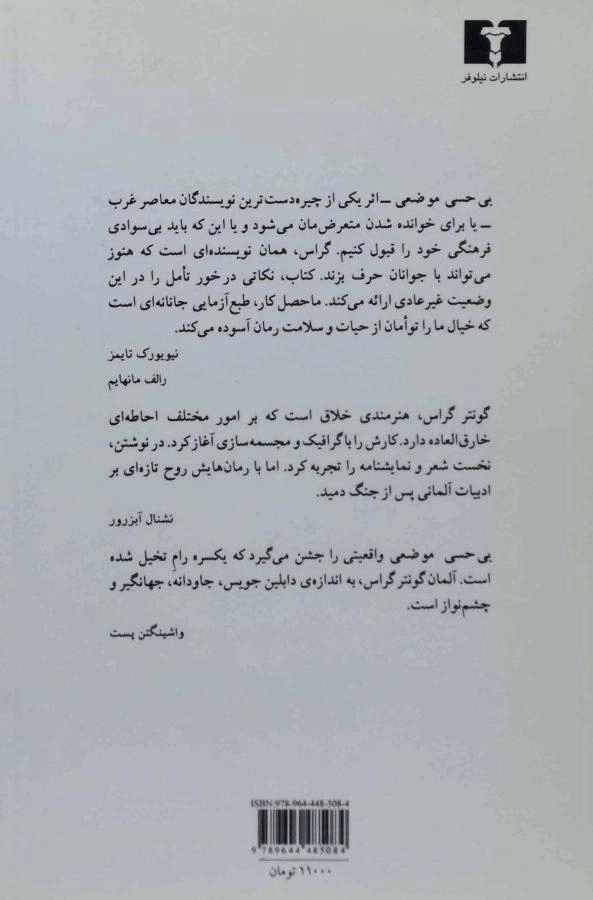 انتشارات نیلوفر
بی‌حسی موضعی ــ اثر یکی از چیره‌دست‌ترین نویسندگان معاصر غرب
ــ یا برای خوانده شدن متعرض‌مان می‌شود و یا این که باید بی‌سوادی
فرهنگی خود را قبول کنیم. گراس، همان نویسنده‌ای است که هنوز
می‌تواند با جوانان حرف بزند. کتاب، نکاتی در خور تأمل را در این
وضعیت غیرعادی ارائه می‌کند. ماحصل کار، طبع‌آزمایی جانانه‌ای است
که خیال ما را توأمان از حیات و سلامت رمان آسوده می‌کند.
نیویورک تایمز
رالف مانهایم
گونتر گراس، هنرمندی خلاق است که بر امور مختلف احاطه‌ای
خارق‌العاده دارد. کارش را با گرافیک و مجسمه‌سازی آغاز کرد. در نوشتن،
نخست شعر و نمایشنامه را تجربه کرد. اما با رمان‌هایش روح تازه‌ای بر
ادبیات آلمانی پس از جنگ دمید.
نشنال آبزرور
بی‌حسی موضعی واقعیتی را جشن می‌گیرد که یکسره رامِ تخیل شده
است. آلمان گونتر گراس، به اندازه‌ی دابلین جویس، جاودانه، جهانگیر و
چشم‌نواز است.
واشینگتن پست
ISBN:978-964-448-508-4
9 789644 485084
۱۱۰۰۰ تومان